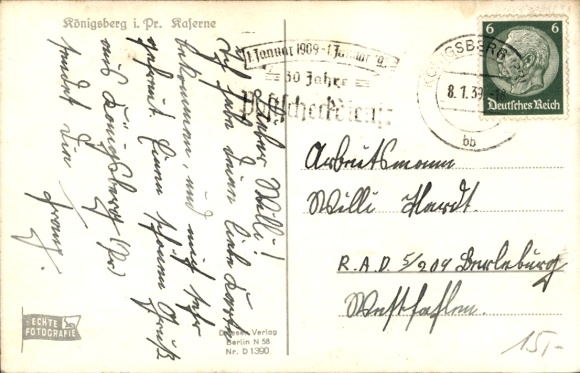 Königsberg i. Pr. Kaserne
Lieber Willi!
Ich habe deine liebe Karte
bekommen, und mich sehr
gefreut. Einen schönen Gruß
aus Königsberg (Pr)
sendet Dir
Franz.
1. Januar 1909 - 1. Januar
30 Jahre
Postscheckdienst
KÖNIGSBERG
8.1.39
bb
6 6
Deutsches Reich
Arbeitsmann
Willi Hardt.
R.A.D. 5/209 Berleburg
Westfahlen.
15,-
ECHTE
FOTOGRAFIE
Verlag
Berlin N 58
Nr. D 1390